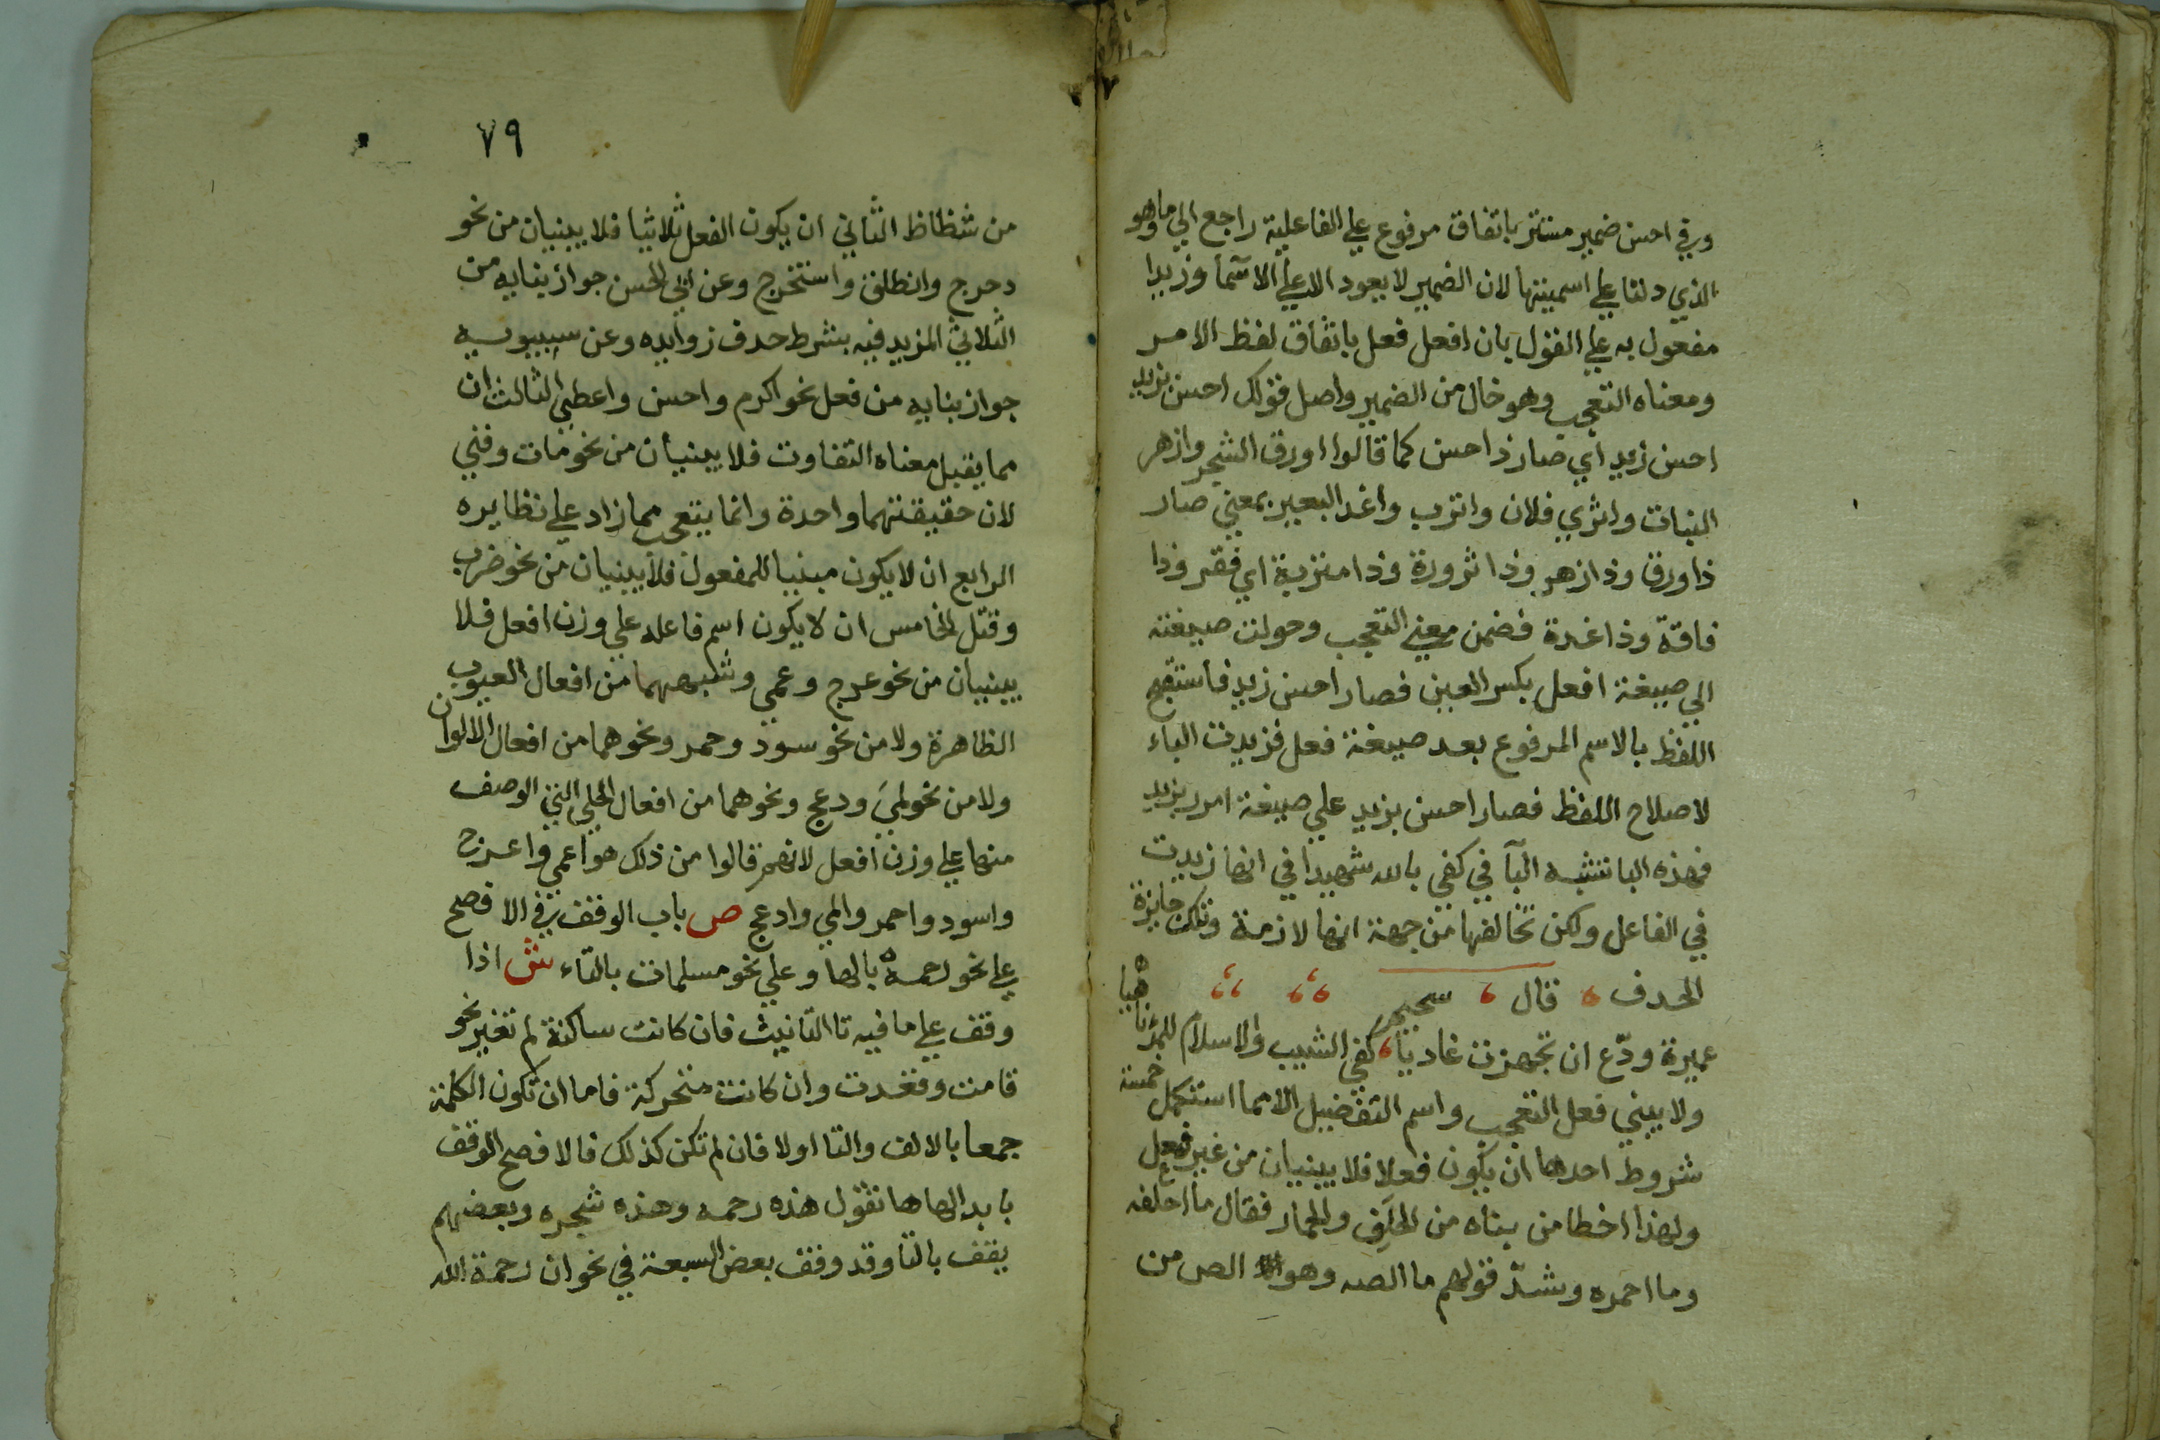 وفي احسن ضمير مستتر باتفاق مرفوع علي الفاعلية راجع الي ما وهو
الذي دلنا علي اسميتها لان الضمير لا يعود الا علي الاسما وزيدا
مفعول به علي القول بان افعل فعل باتفاق لفظ الامر
ومعناه التعجب وهو خال من الضمير واصل قولك احسن بزيد
احسن زيد اي صار ذا حسن كما قالوا اورق الشجر وازهر
النبات واثري فلان واترب واغد البعير بمعني صار
ذا ورق وذا زهر وذا ثروة وذا متربة اي فقر وذا
فاقة وذا غدة فضمن معني التعجب وحولت صيغته
الي صيغة افعل بكسر العين فصار احسن زيد فاستقبح
اللفظ بالاسم المرفوع بعد صيغة فعل فزيدت الباء
لاصلاح اللفظ فصار احسن بزيد علي صيغة امرر بزيد
فهذه البا تشبه البآ في كفي بالله شهيدا في انها زيدت
في الفاعل ولكن تخالفها من جهة انها لازمة وتلك جايزة
الحدف قال سحيم
عميرة ودّع ان تجهزت غاديا كفي الشيب والاسلام للمرء ناهيا
ولا يبني فعل التعجب واسم التفضيل الا مما استكمل خمسة
شروط احدها ان يكون فعلا فلا يبنيان من غير فعل
ولهذا اخطا من بناه من الجلف والحمار فقال ما اجلفه
وما احمره وشذّ قولهم ما الصه وهو الص من
٧٩
من شظاظ الثاني ان يكون الفعل ثلاثيا فلا يبنيان من نحو
دحرج وانطلق واستخرج وعن ابي الحسن جواز بنايه من
الثلاثي المزيد فيه بشرط حدف زوايده وعن سيبويه
جواز بنايه من فعل نحو اكرم واحسن واعطي الثالث ان
مما يقبل معناه التفاوت فلا يبنيان من نحو مات وفني
لان حقيقتهما واحدة وانما يتعجب مما زاد علي نظايره
الرابع ان لا يكون مبنيا للمفعول فلا يبنيان من نحو ضرب
وقتل الخامس ان لا يكون اسم فاعله علي وزن افعل فلا
يبنيان من نحو عرج وعمي وشبههما من افعال العيوب
الظاهرة ولا من نحو سود وحمر ونحوهما من افعال الالوان
ولا من نحو لميَ ودعج ونحوهما من افعال الحلي التي الوصف
منها علي وزن افعل لانهم قالوا من ذلك هو اعمي واعرج
واسود واحمر والمي وادعج ص باب الوقف في الافصح
علي نحو رحمة بالها وعلي نحو مسلمات بالتاء ش اذا
وقف علي ما فيه تا التانيث فان كانت ساكنة لم تغير نحو
قامت وقعدت وان كانت متحركة فاما ان تكون الكلمة
جمعا بالالف والتا اولا فان لم تكن كذلك فالافصح الوقف
بابدالها ها تقول هذه رحمه وهذه شجره وبعضهم
يقف بالتا وقد وقف بعض السبعة في نحو ان رحمة الله